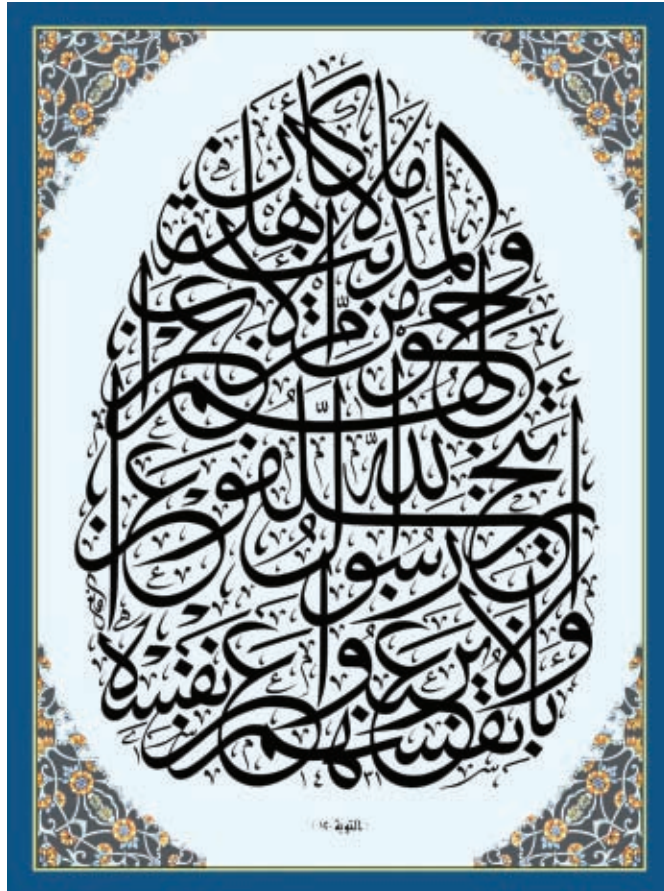 ما كان لأهل المدينة
ومن حولهم من الأعراب
أن يتخلفوا عن رسول الله
ولا يرغبوا بأنفسهم عن نفسه
١٤٣١
التوبة ١٢٠